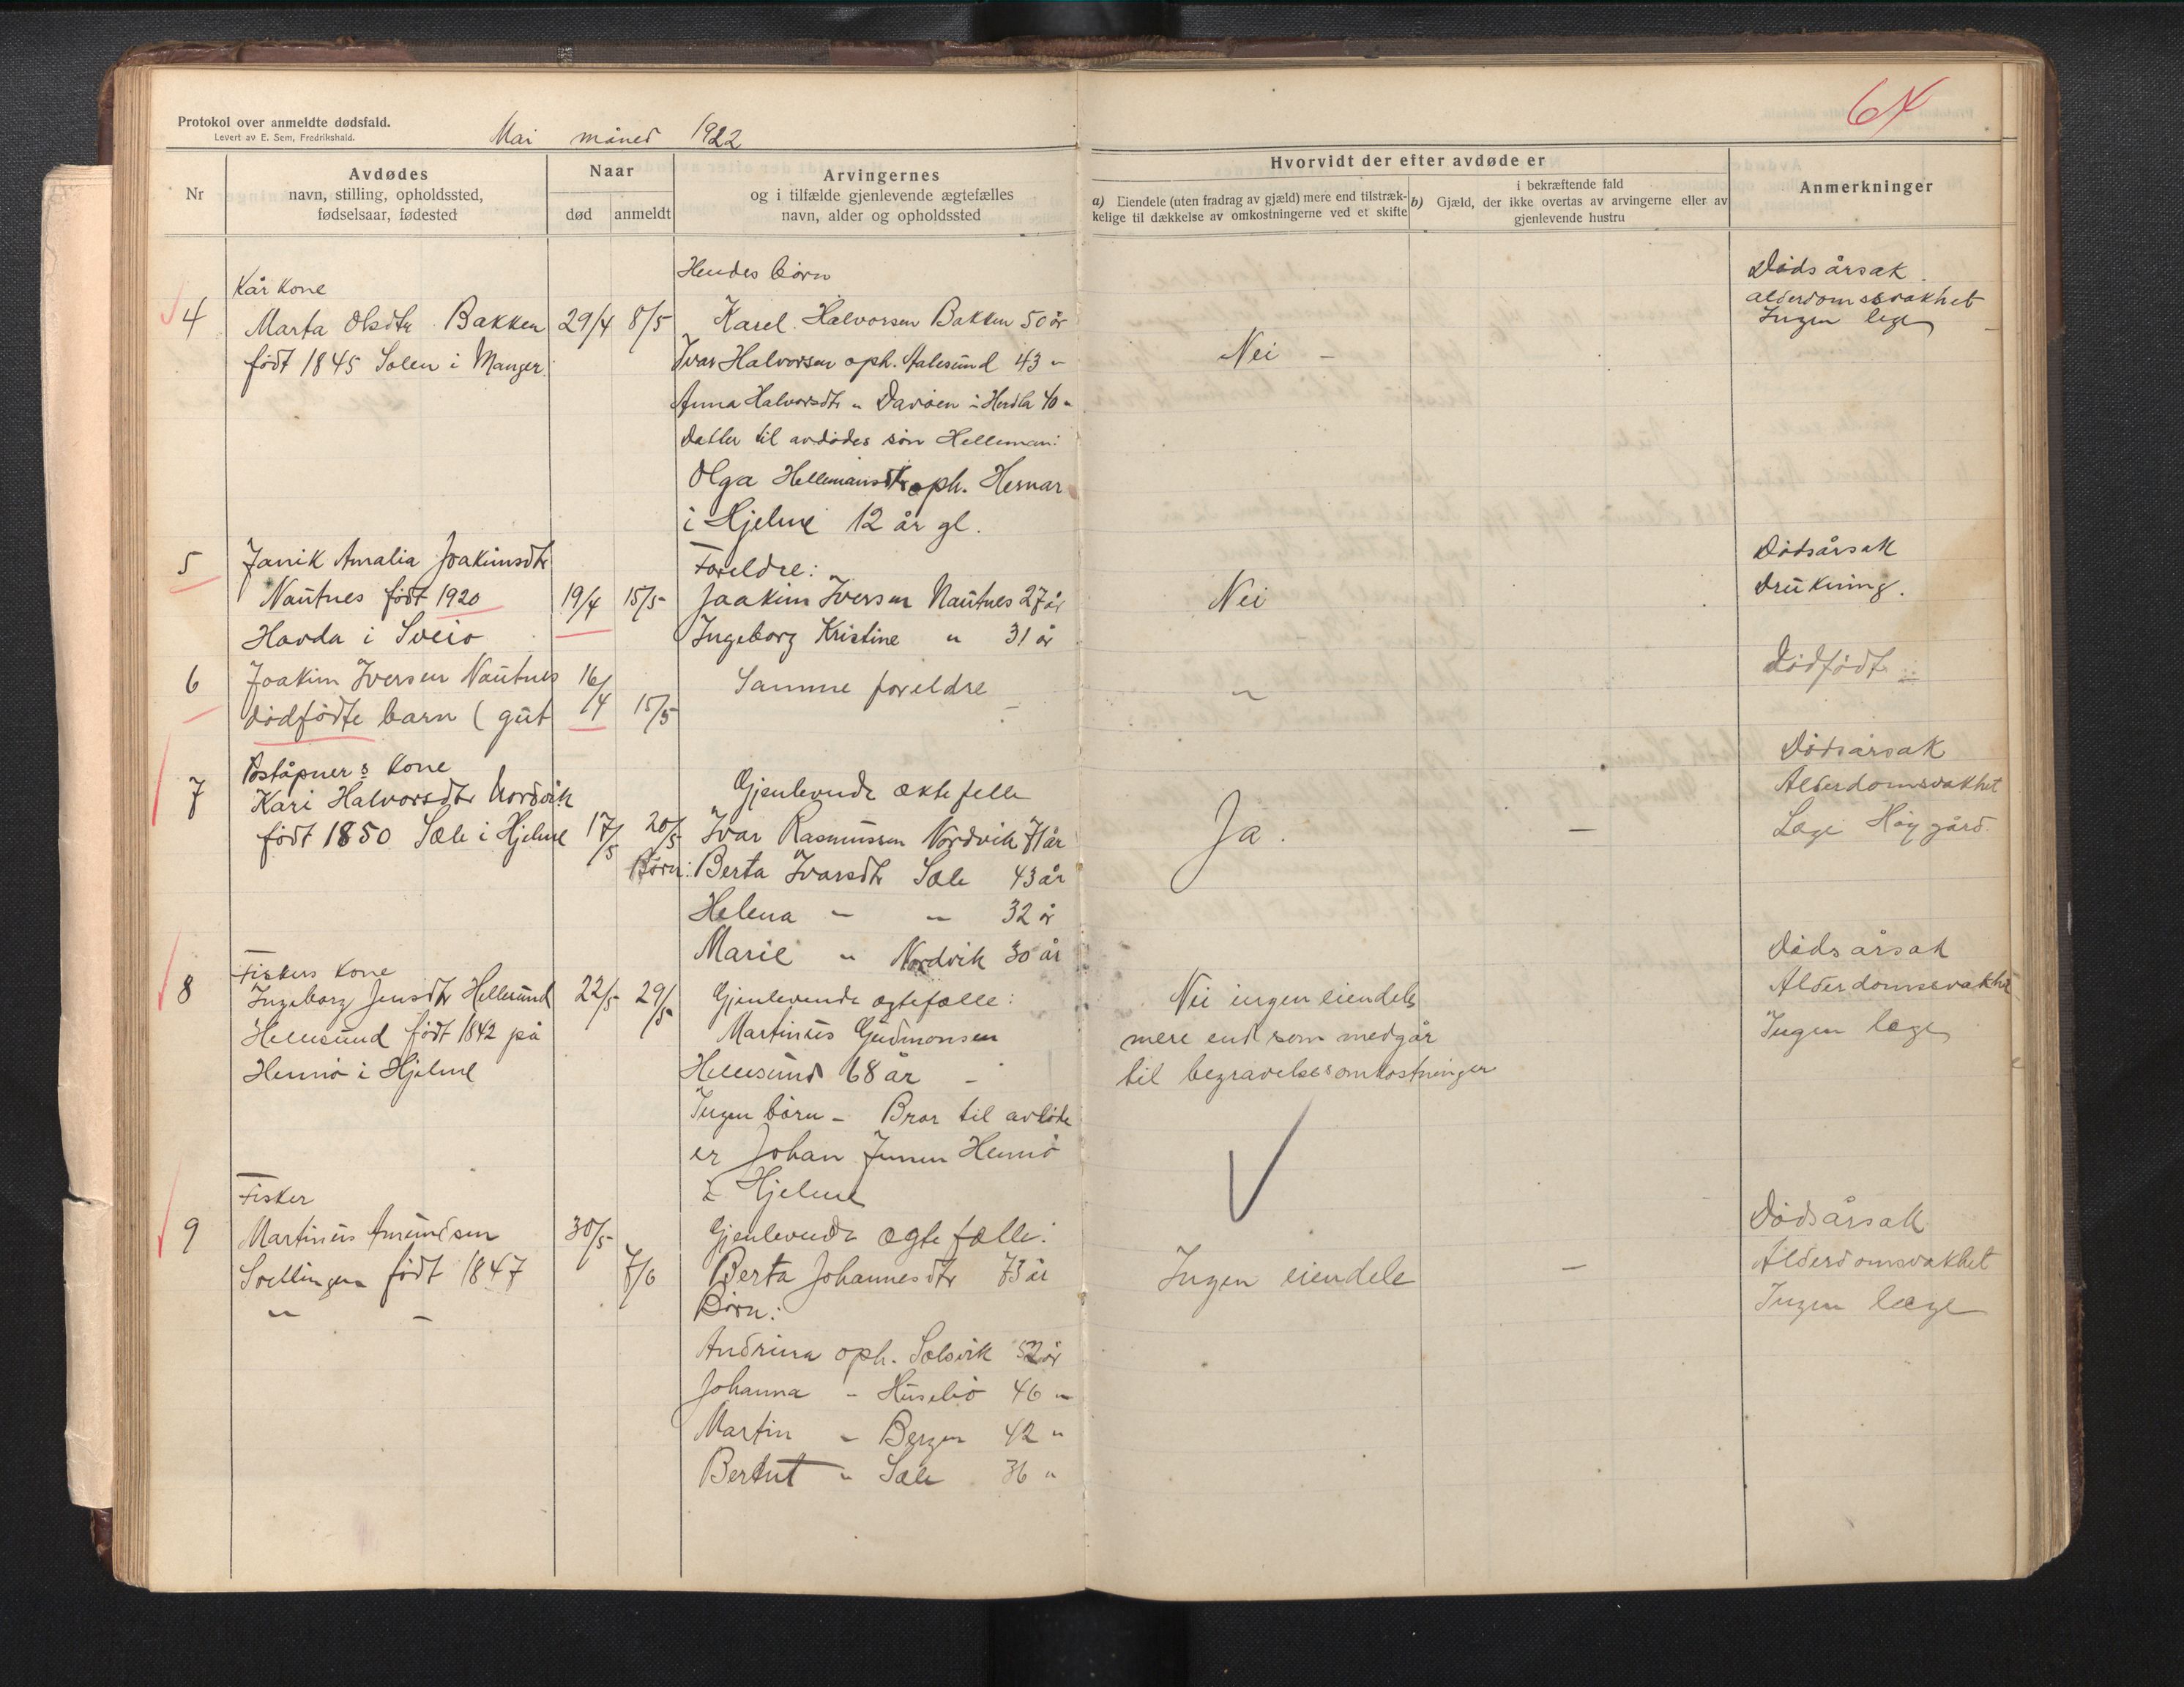 Protokol over anmeldte dødsfald.
Levert av E. Sem, Fredrikshald.
Mai måned 1922
64
Nr
Avdødes
navn, stilling, opholdssted,
fødselsaar, fødested
Naar
død
anmeldt
Arvingernes
og i tilfælde gjenlevende ægtefælles
navn, alder og opholdssted
Hvorvidt der efter avdøde er
a) Eiendele (uten fradrag av gjæld) mere end tilstræk-
kelige til dækkelse av omkostningerne ved et skifte
b) Gjæld, der ikke overtas av arvingerne eller av
i bekræftende fald
gjenlevende hustru
Anmerkninger
4
Kårkone
Marta Olsdtr Bakken
født 1845 Solen i Manger
29/4 8/5
Hendes børn
Karel Halvorsen Bakken 50 år
Ivar Halvorsen oph. Aalesund 43 "
Anna Halvorsdtr " Davøen i Herdla 40 "
Datter til avdødes søn Helleman:
Olga Hellemansdtr oph. Hernar
i Hjelme 12 år gl.
Nei -
Dødsårsak
alderdomssvakhet
Ingen lege
5
Janik Amalia Joakimsdtr
Nautnes født 1920
Havda i Sveio
19/4 15/5
Foreldre:
Joakim Iversen Nautnes 27 år
Ingeborg Kristine " 31 år
Nei
Dødsårsak
Drukning.
6
Joakim Iversen Nautnes
dødfødte barn (gut
16/4 15/5
Samme foreldre
"
Dødfødt
7
Poståpners kone
Kari Halvorsdtr Nordvik
født 1850 Sæle i Hjelme
17/5 20/5
Gjenlevende æktefelle
Ivar Rasmussen Nordvik 71 år
Børn: Berta Ivarsdtr Sæle 43 år
Helena " " 32 år
Marie " Nordvik 30 år
Ja.
-
Dødsårsak
Alderdomsvakhet
Læge Høygård
8
Fiskers kone
Ingeborg Jensdtr Hellesund
Hellesund født 1842 på
Hennø i Hjelme
22/5 29/5
Gjenlevende ægtefælle:
Martinus Gudmonsen
Hellesund 68 år -
Ingen børn - Bror til avdøde
er Johan Jensen Hennø
i Hjelme
Nei ingen eiendels
mere end som medgår
til begravelsesomkostninger
Dødsårsak
Alderdomssvakhet
Ingen læge
9
Fisker
Martinus Amundsen
Soellingen født 1847
" -
30/5 7/6
Gjenlevende ægtefælle:
Berta Johannesdtr 73 år
Børn:
Andrina oph. Solsvik 52 år
Johanna - Husebø 46 "
Martin - Bergen 42 "
Bertut " Sæle 36 "
Ingen eiendele
-
Dødsårsak
Alderdomsvakhet
Ingen læge